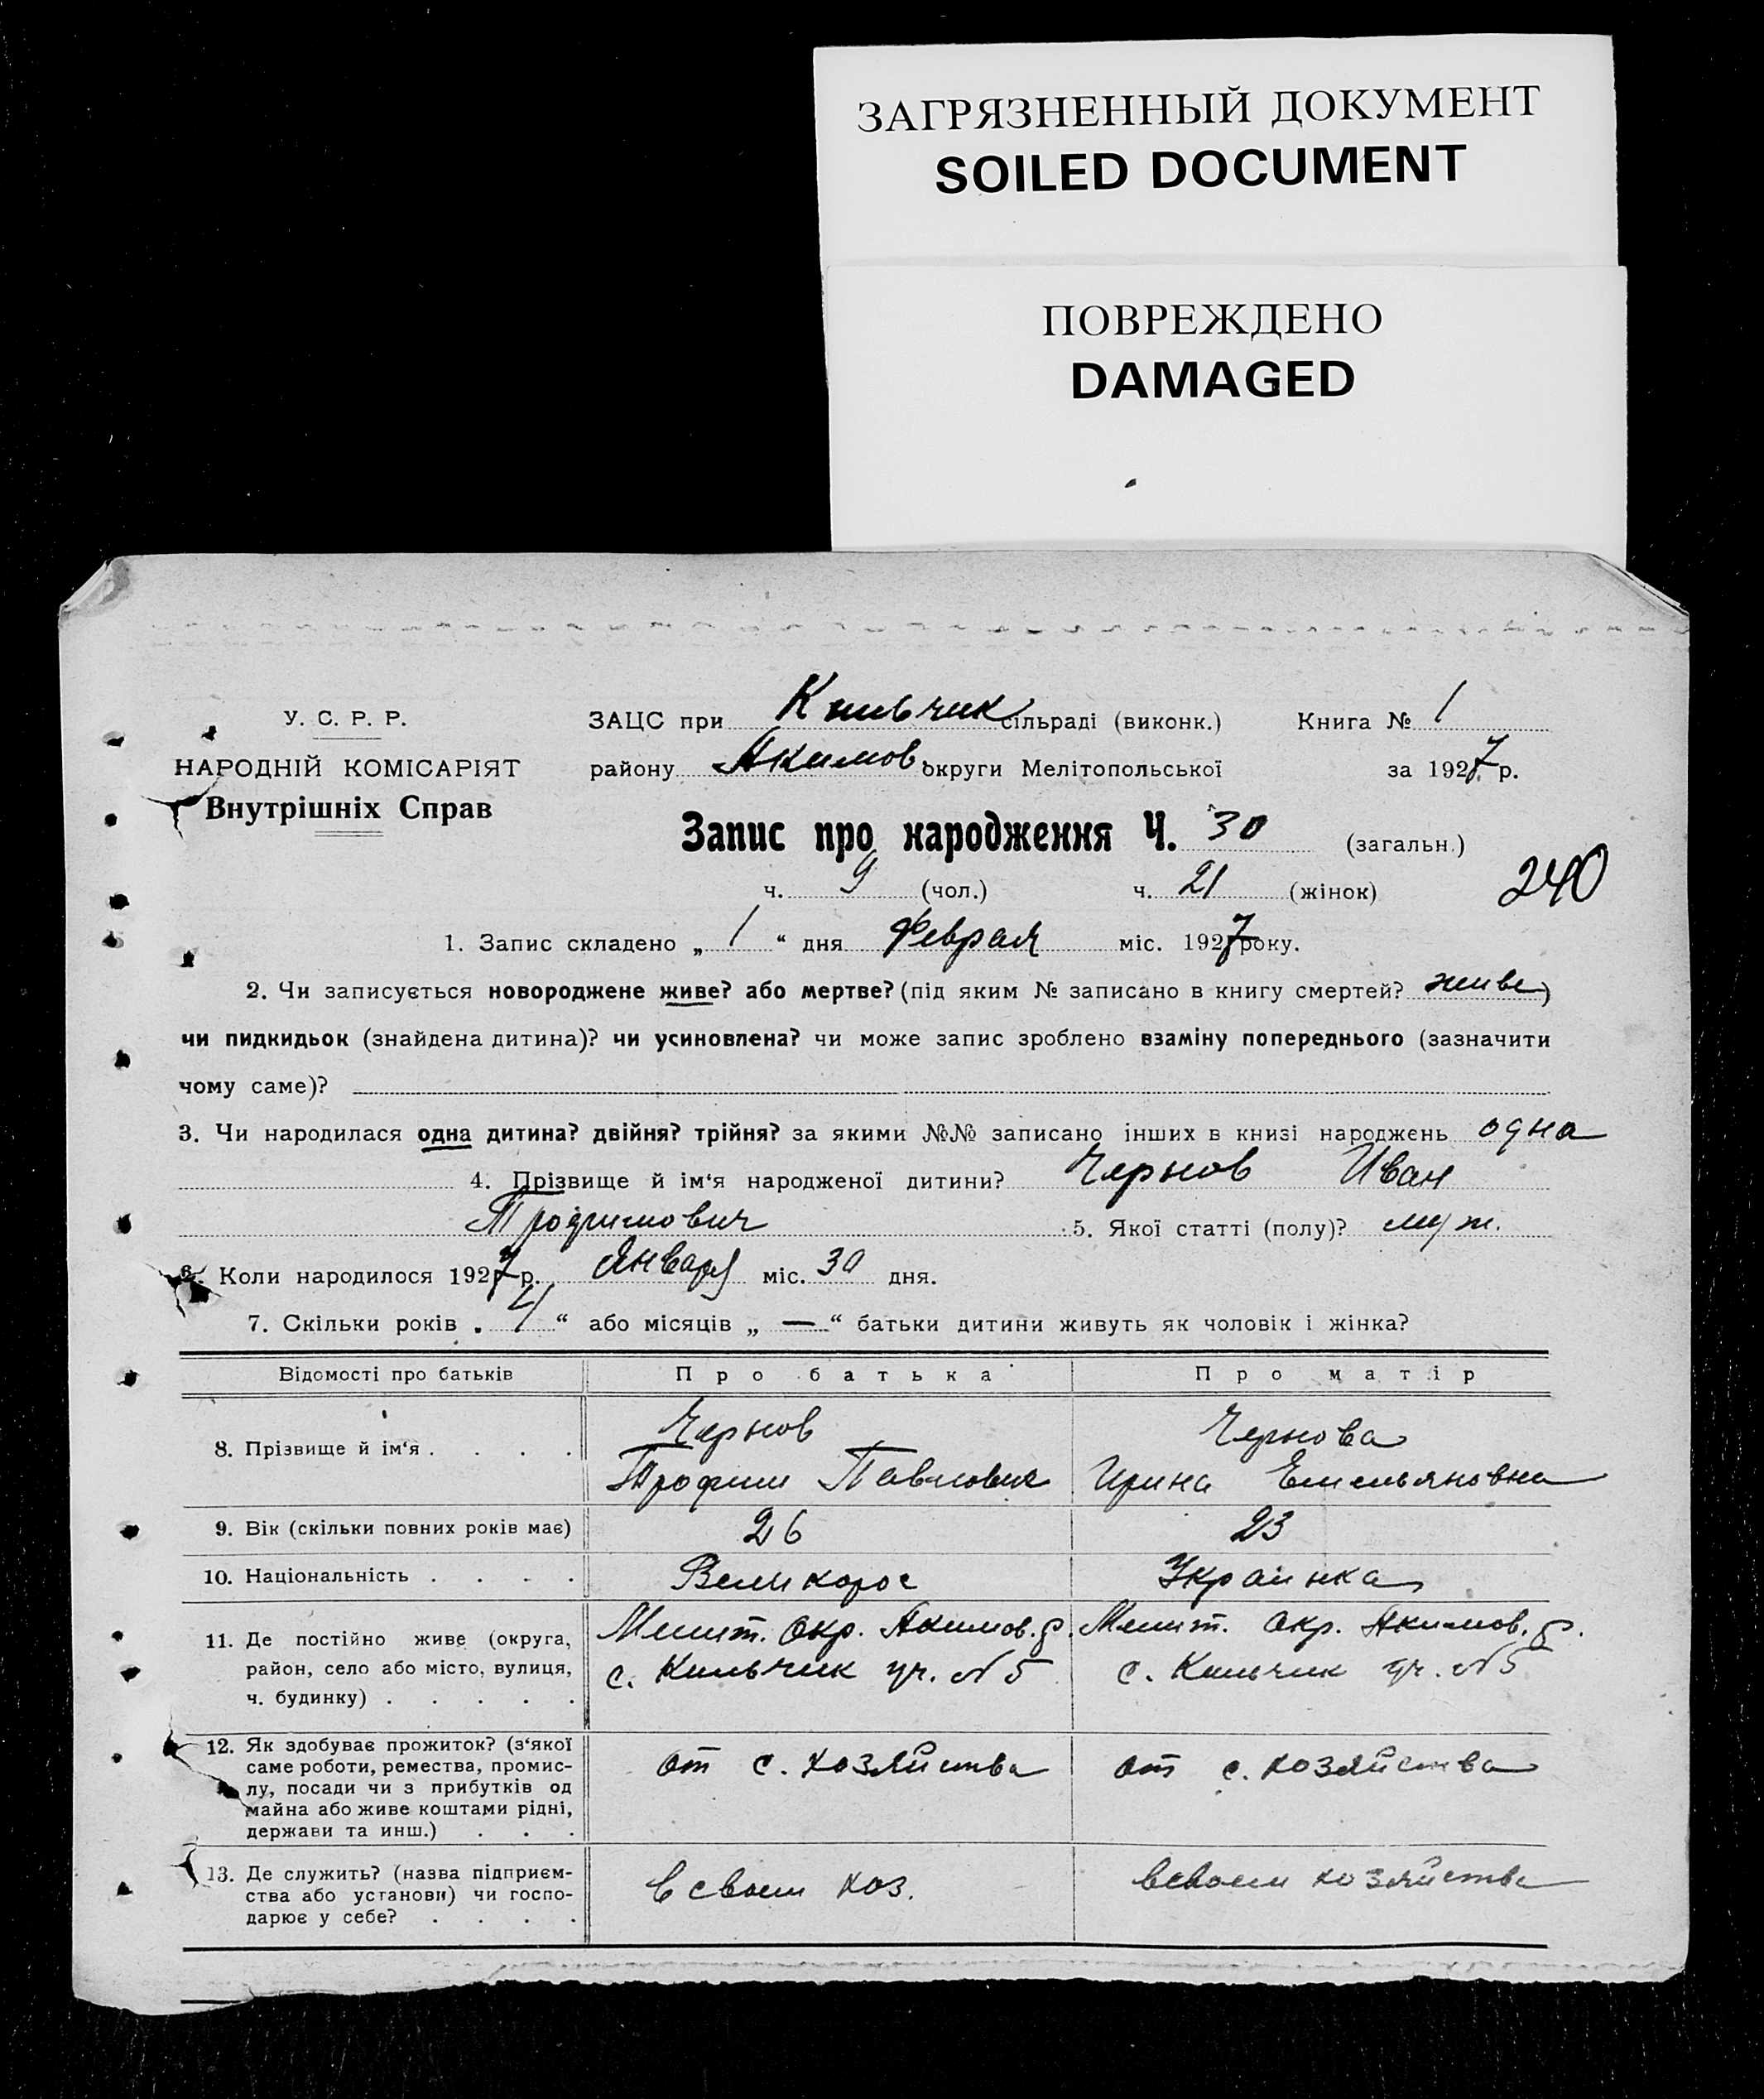 ЗАГРЯЗНЕННЫЙ ДОКУМЕНТ
SOILED DOCUMENT
ПОВРЕЖДЕНО
DAMAGED
У. С. Р. Р.
НАРОДНІЙ КОМІСАРІЯТ
Внутрішніх Справ
ЗАЦС при Кильчик сільраді (виконк.) Книга № 1
району Акимов. округи Мелітопольської за 1927 р.
Запис про народження Ч. 30 (загальн.)
ч. 9 (чол.) ч. 21 (жінок) 240
1. Запис складено „ 1 “ дня Февраля міс. 1927 року.
2. Чи записується новороджене живе? або мертве? (під яким № записано в книгу смертей? живе)
чи пидкидьок (знайдена дитина)? чи усиновлена? чи може запис зроблено взаміну попереднього (зазначити
чому саме)?
3. Чи народилася одна дитина? двійня? трійня? за якими №№ записано інших в книзі народжень одна
4. Прізвище й ім‘я народженої дитини? Чернов Иван
Трофимович 5. Якої статті (полу)? муж.
6. Коли народилося 1927 р. Января міс. 30 дня.
7. Скільки років „ 4 “ або місяців „ — “ батьки дитини живуть як чоловік і жінка?
Відомості про батьків Про батька Про матір
8. Прізвище й ім‘я . . . . Чернов Трофим Павлович Чернова Ирина Емельяновна
9. Вік (скільки повних років має) 26 23
10. Національність . . . . Великорос Украинка
11. Де постійно живе (округа,
район, село або місто, вулиця,
ч. будинку) . . . . .
Мелит. Окр. Акимов. р.
с. Кильчик уч. № 5
Мелит. Окр. Акимов. р.
с. Кильчик уч. № 5
12. Як здобуває прожиток? (з‘якої
саме роботи, ремества, промис-
лу, посади чи з прибутків од
майна або живе коштами рідні,
держави та инш.) . . .
от с. хозяйства
от с. хозяйства
13. Де служить? (назва підприєм-
ства або установи) чи госпо-
дарює у себе? . . . .
в своем хоз.
в своем хозяйстве